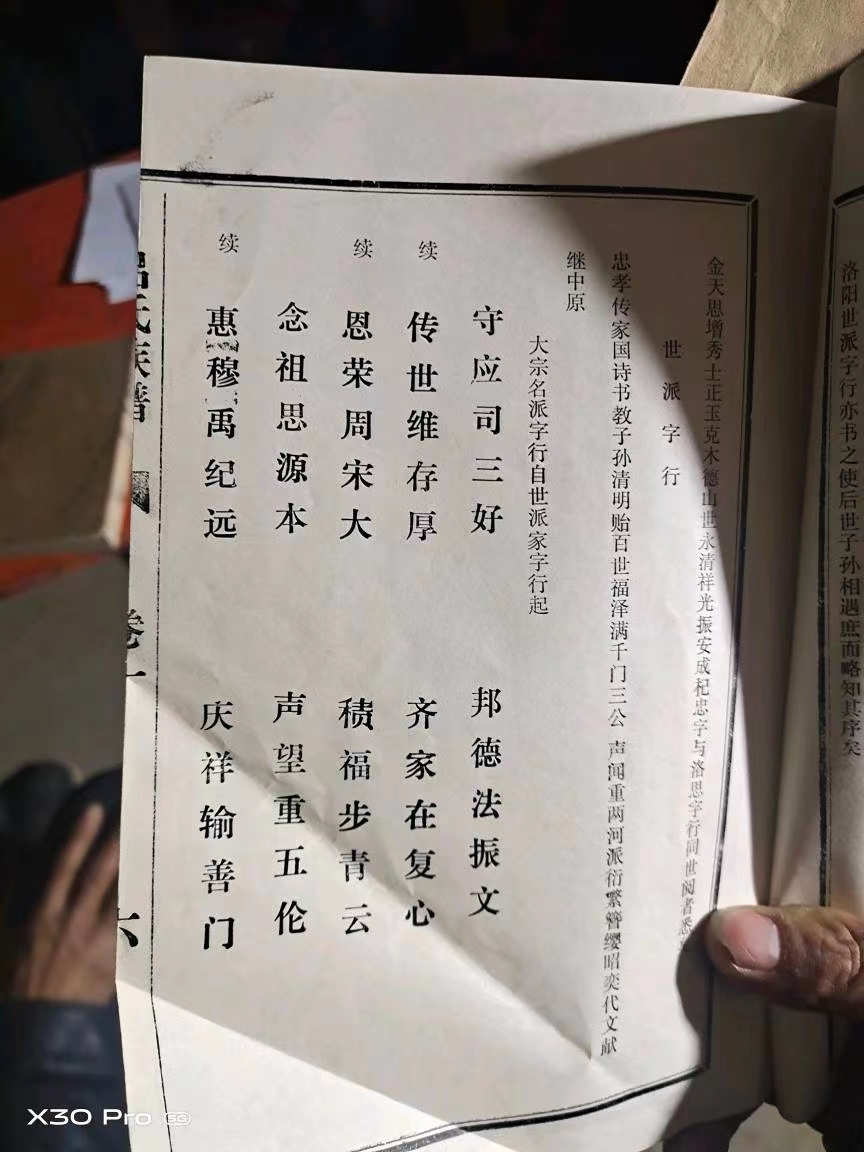 洛阳世派字行亦书之使后世子孙相遇庶而略知其序矣
金天思增秀士正玉克木德山世永清祥光振安成杞忠字与洛思字行同世阅者悉
世派字行
忠孝传家国诗书教子孙清明贻百世福泽满千门三公 声闻重两河派衍繁簪缨昭奕代文献
继中原
大宗名派字行自世派家字行起
守应司三好 邦德法振文
续 传世维存厚 齐家在复心
续 恩荣周宋大 积福步青云
念祖思源本 声望重五伦
续 惠穆禹纪远 庆祥输善门
氏族谱
卷一
六
X30 Pro 5G